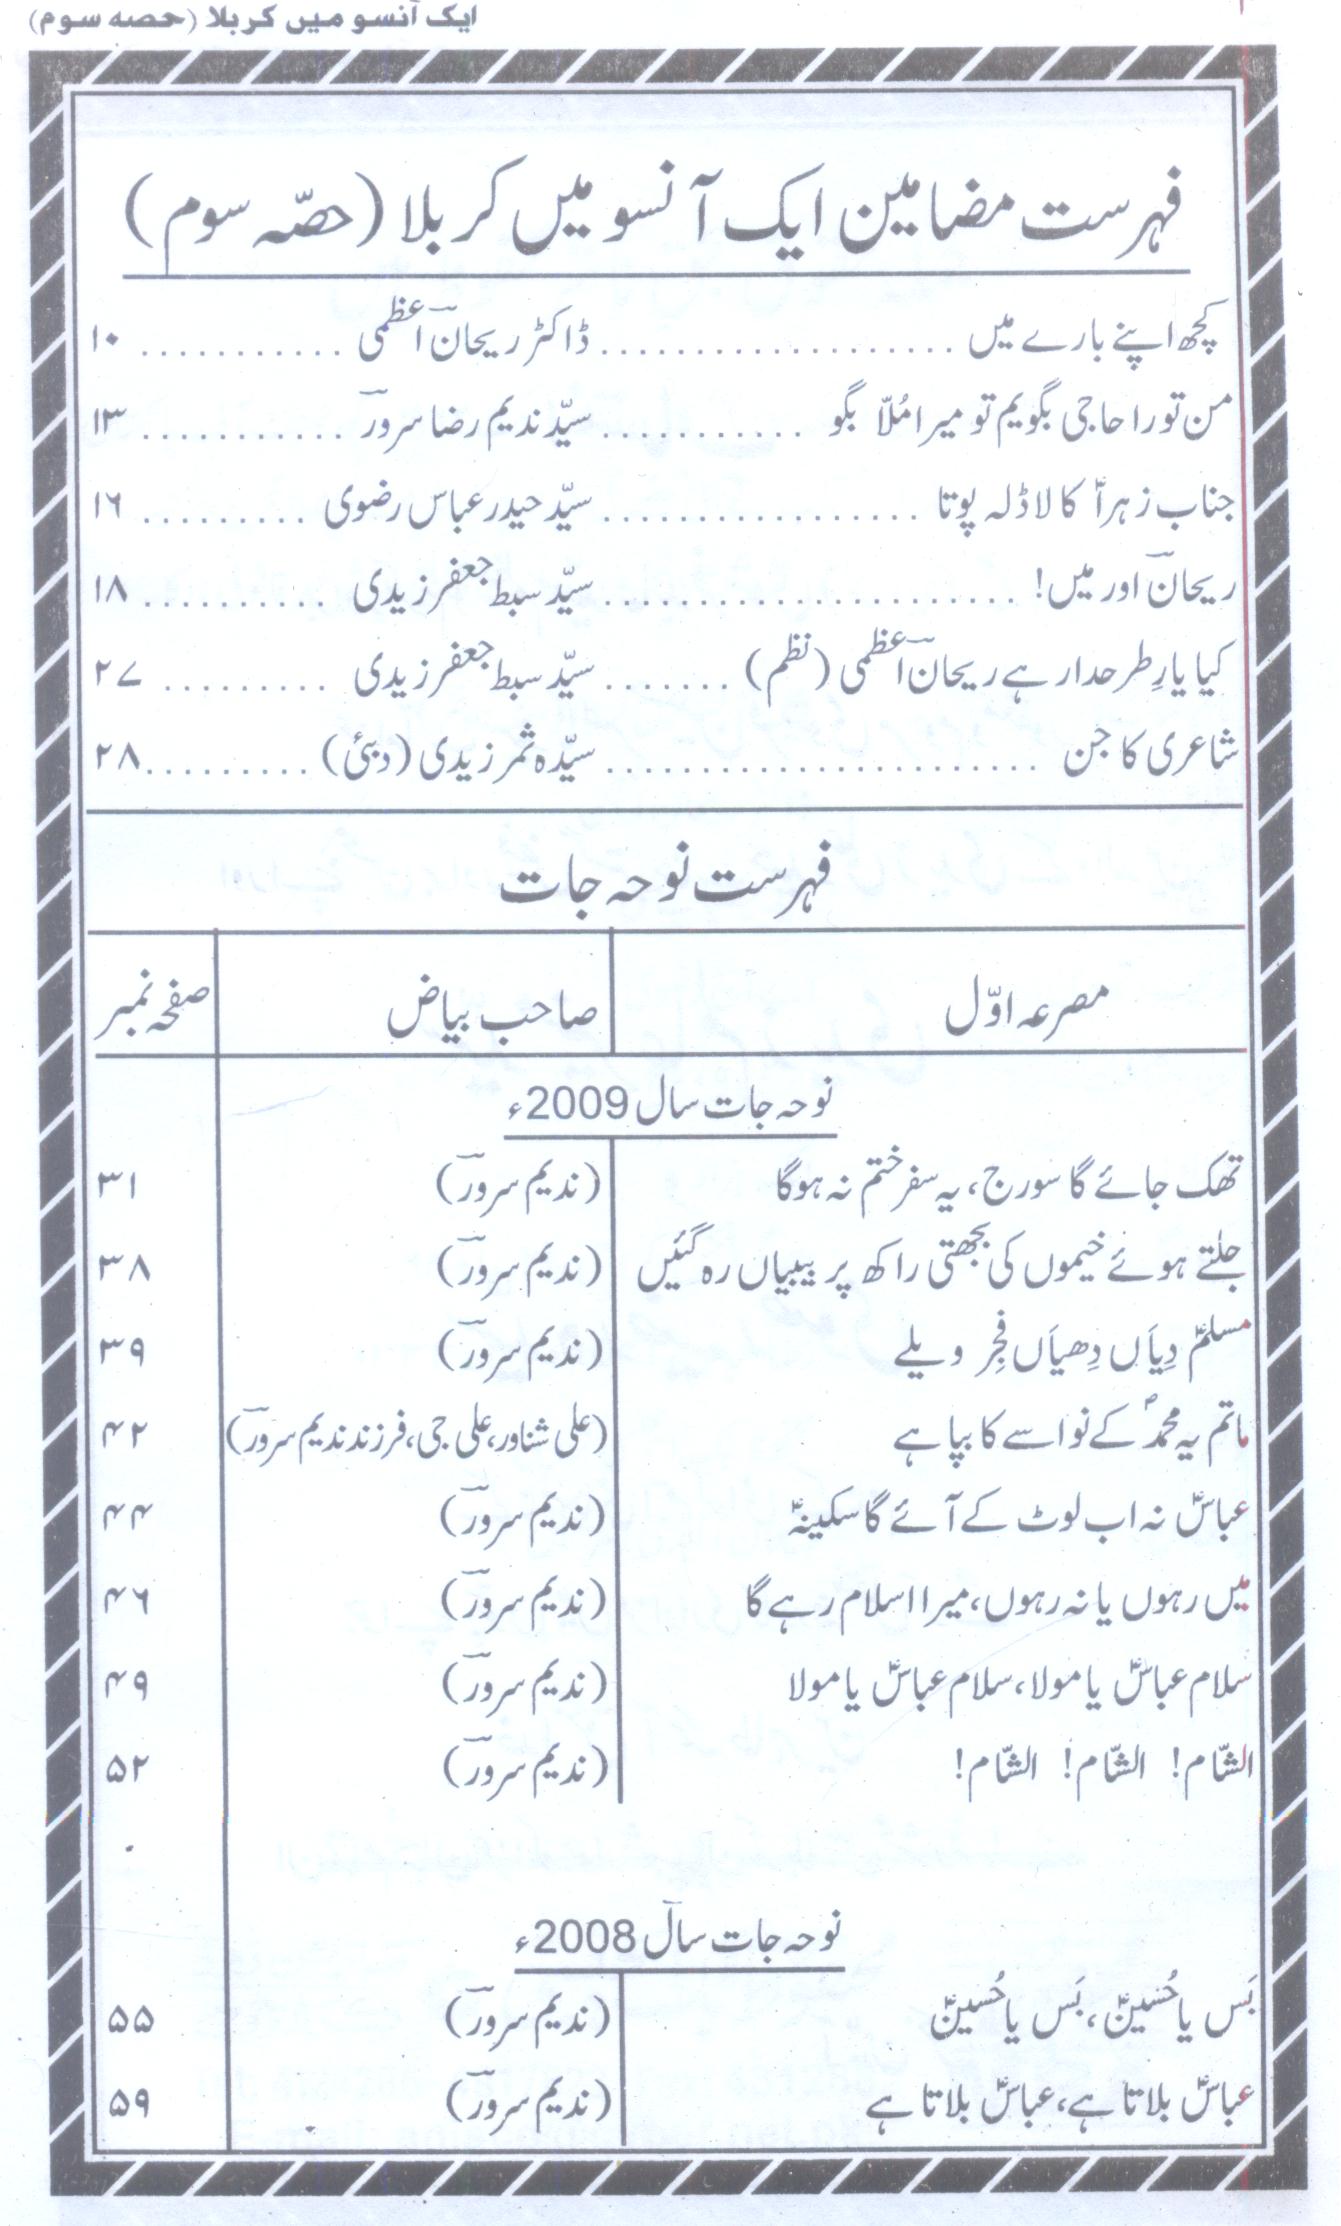 ایک آنسو میں کربلا (حصہ سوم)
فہرست مضامین ایک آنسو میں کربلا (حصّہ سوم)
کچھ اپنے بارے میں ................... ڈاکٹر ریحانؔ اعظمی ........... ۱۰
من تورا حاجی بگویم تو میرا مُلّا بگو ........... سیّد ندیم رضا سرورؔ ........... ۱۳
جناب زہراؑ کا لاڈلہ پوتا ................. سیّد حیدر عباس رضوی ......... ۱۶
ریحانؔ اور میں! ...................... سیّد سبط جعفر زیدی ......... ۱۸
کیا یارِ طرحدار ہے ریحانؔ اعظمی (نظم) ....... سیّد سبط جعفر زیدی ......... ۲۷
شاعری کا جن ....................... سیّدہ ثمر زیدی (دبئی) ......... ۲۸
فہرست نوحہ جات
مصرعہ اوّل صاحب بیاض صفحہ نمبر
نوحہ جات سال 2009ء
تھک جائے گا سورج، یہ سفر ختم نہ ہوگا (ندیم سرورؔ) ۳۱
جلتے ہوئے خیموں کی بجھتی راکھ پر بیبیاں رہ گئیں (ندیم سرورؔ) ۳۸
مسلمؑ دِیاَں دِھیاَں فجِر ویلے (ندیم سرورؔ) ۳۹
ماتم یہ محمدؐ کے نواسے کا بپا ہے (علی شناور، علی جی، فرزند ندیم سرورؔ) ۴۲
عباسؑ نہ اب لوٹ کے آئے گا سکینہؑ (ندیم سرورؔ) ۴۴
میں رہوں یا نہ رہوں، میرا اسلام رہے گا (ندیم سرورؔ) ۴۶
سلام عباسؑ یا مولا، سلام عباسؑ یا مولا (ندیم سرورؔ) ۴۹
الشّام! الشّام! الشّام! (ندیم سرورؔ) ۵۲
نوحہ جات سال 2008ء
بَس یا حُسینؑ، بَس یا حُسینؑ (ندیم سرورؔ) ۵۵
عباسؑ بلاتا ہے، عباسؑ بلاتا ہے (ندیم سرورؔ) ۵۹